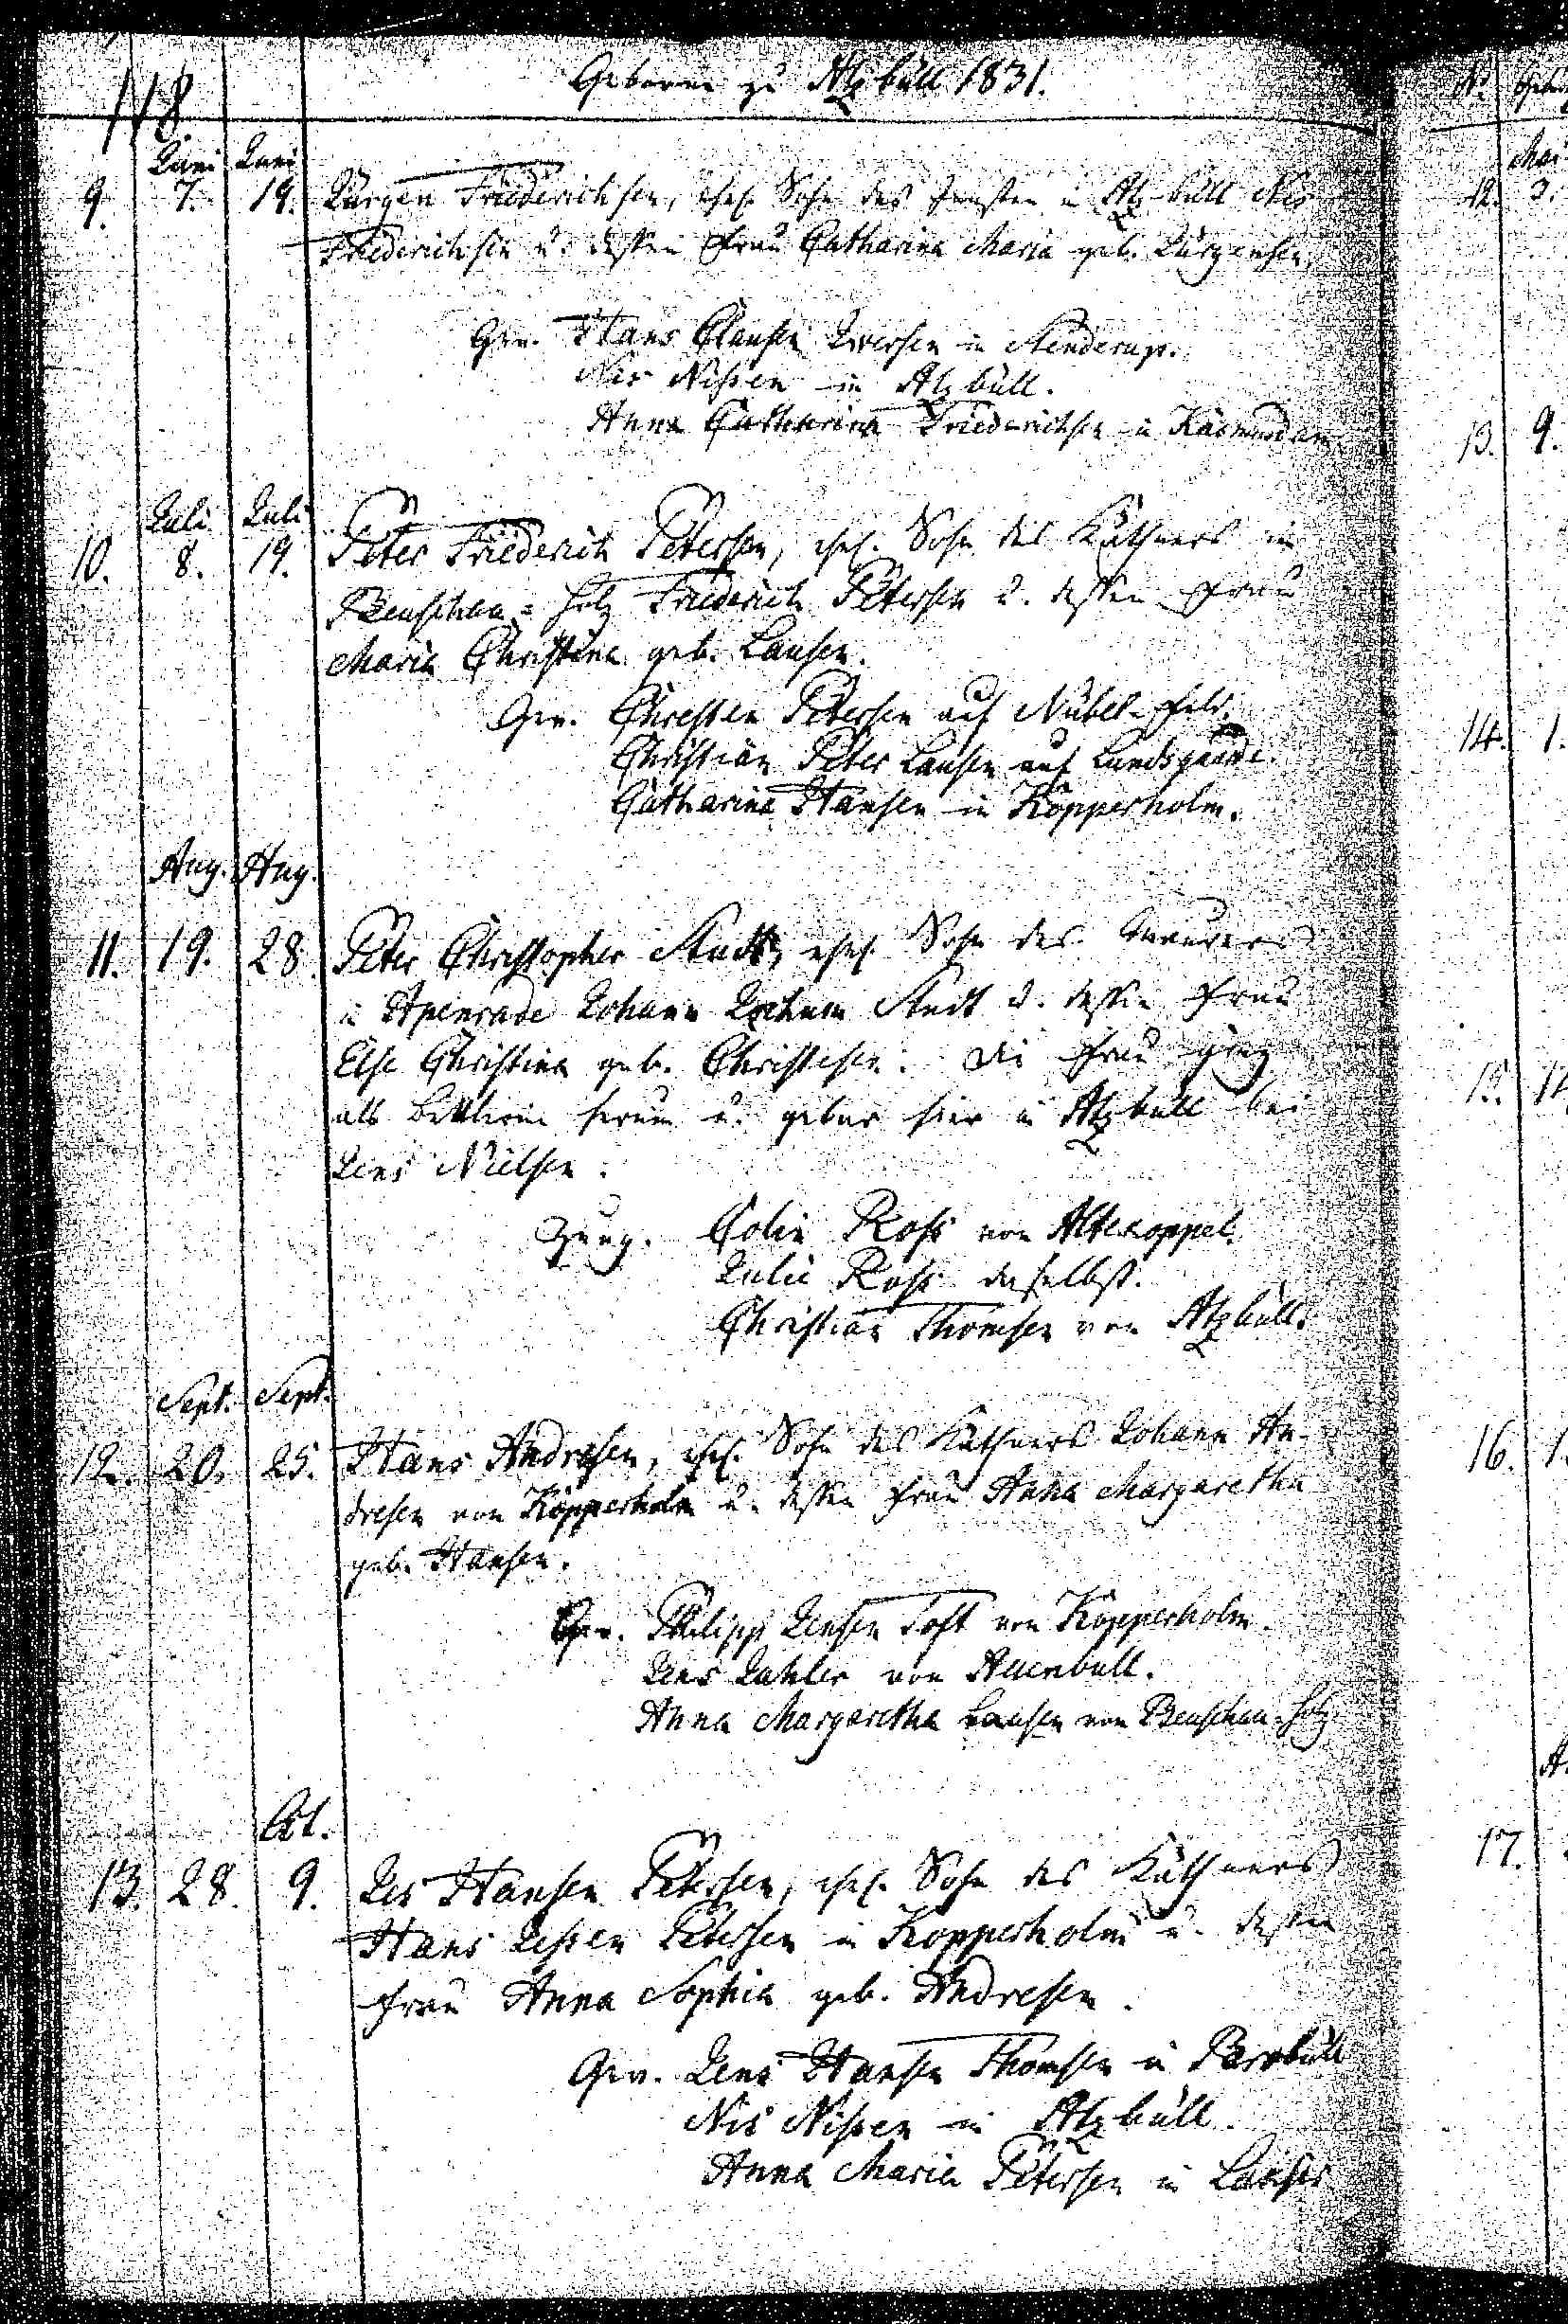 118.
Geborne zu Atzbüll 1831.
Juni Juni
9. 7. 19. Jürgen Friederichsen, ehel. Sohn des Insten in Atzbüll Nis
Friederichsen u. dessen Frau Catharina Maria geb. Jürgensen.
Gev. Hans Clausen Iwersen in Stenderup.
Nis Nissen in Atzbüll.
Anna Catharina Friederichsen in
Juli Juli
10. 8. 19. Peter Friederich Petersen, ehel. Sohn des Käthners in
Beuschau=Holz Friederich Petersen u. dessen Frau
Maria Christina geb. Lausen.
Gev. Christen Petersen auf Nübel-Feld.
Christian Peter Lausen auf Lundsgaarde.
Catharina Hansen in Kopperholm.
Aug. Aug.
11. 19. 28. Peter Christopher Stadt, ehel. Sohn des Maurers
in Apenrade Johann Jochum Stadt u. dessen Frau
Else Christina geb. Christesen. Die Frau ging
als Bettlerin herum u. gebar hier in Atzbüll bei
Jens Nielsen.
Zeug. Colin Ross von Altekoppel.
Julie Ross daselbst.
Christian Thomsen von Atzbüll.
Sept. Sept.
12. 20. 25. Hans Andresen, ehel. Sohn des Käthners Johann An-
dresen von Kopperholm u. dessen Frau Anna Margaretha
geb. Hansen.
Gev. Philipp Jensen Toft von Kopperholm.
Jens Lahler von Auenbüll.
Anna Margaretha Lausen von Beuschau-Holz.
Oct.
13. 28. 9. Jes Hansen Petersen, ehel. Sohn des Käthners
Hans Jessen Petersen in Kopperholm u. dessen
Frau Anna Sophia geb. Andresen.
Gev. Jens Hansen Thomsen in
Nis Nissen in Atzbüll.
Anna Maria Petersen in
No.
Mai
12. 3.
13. 9.
14. 1.
15.
16. 1.
17.